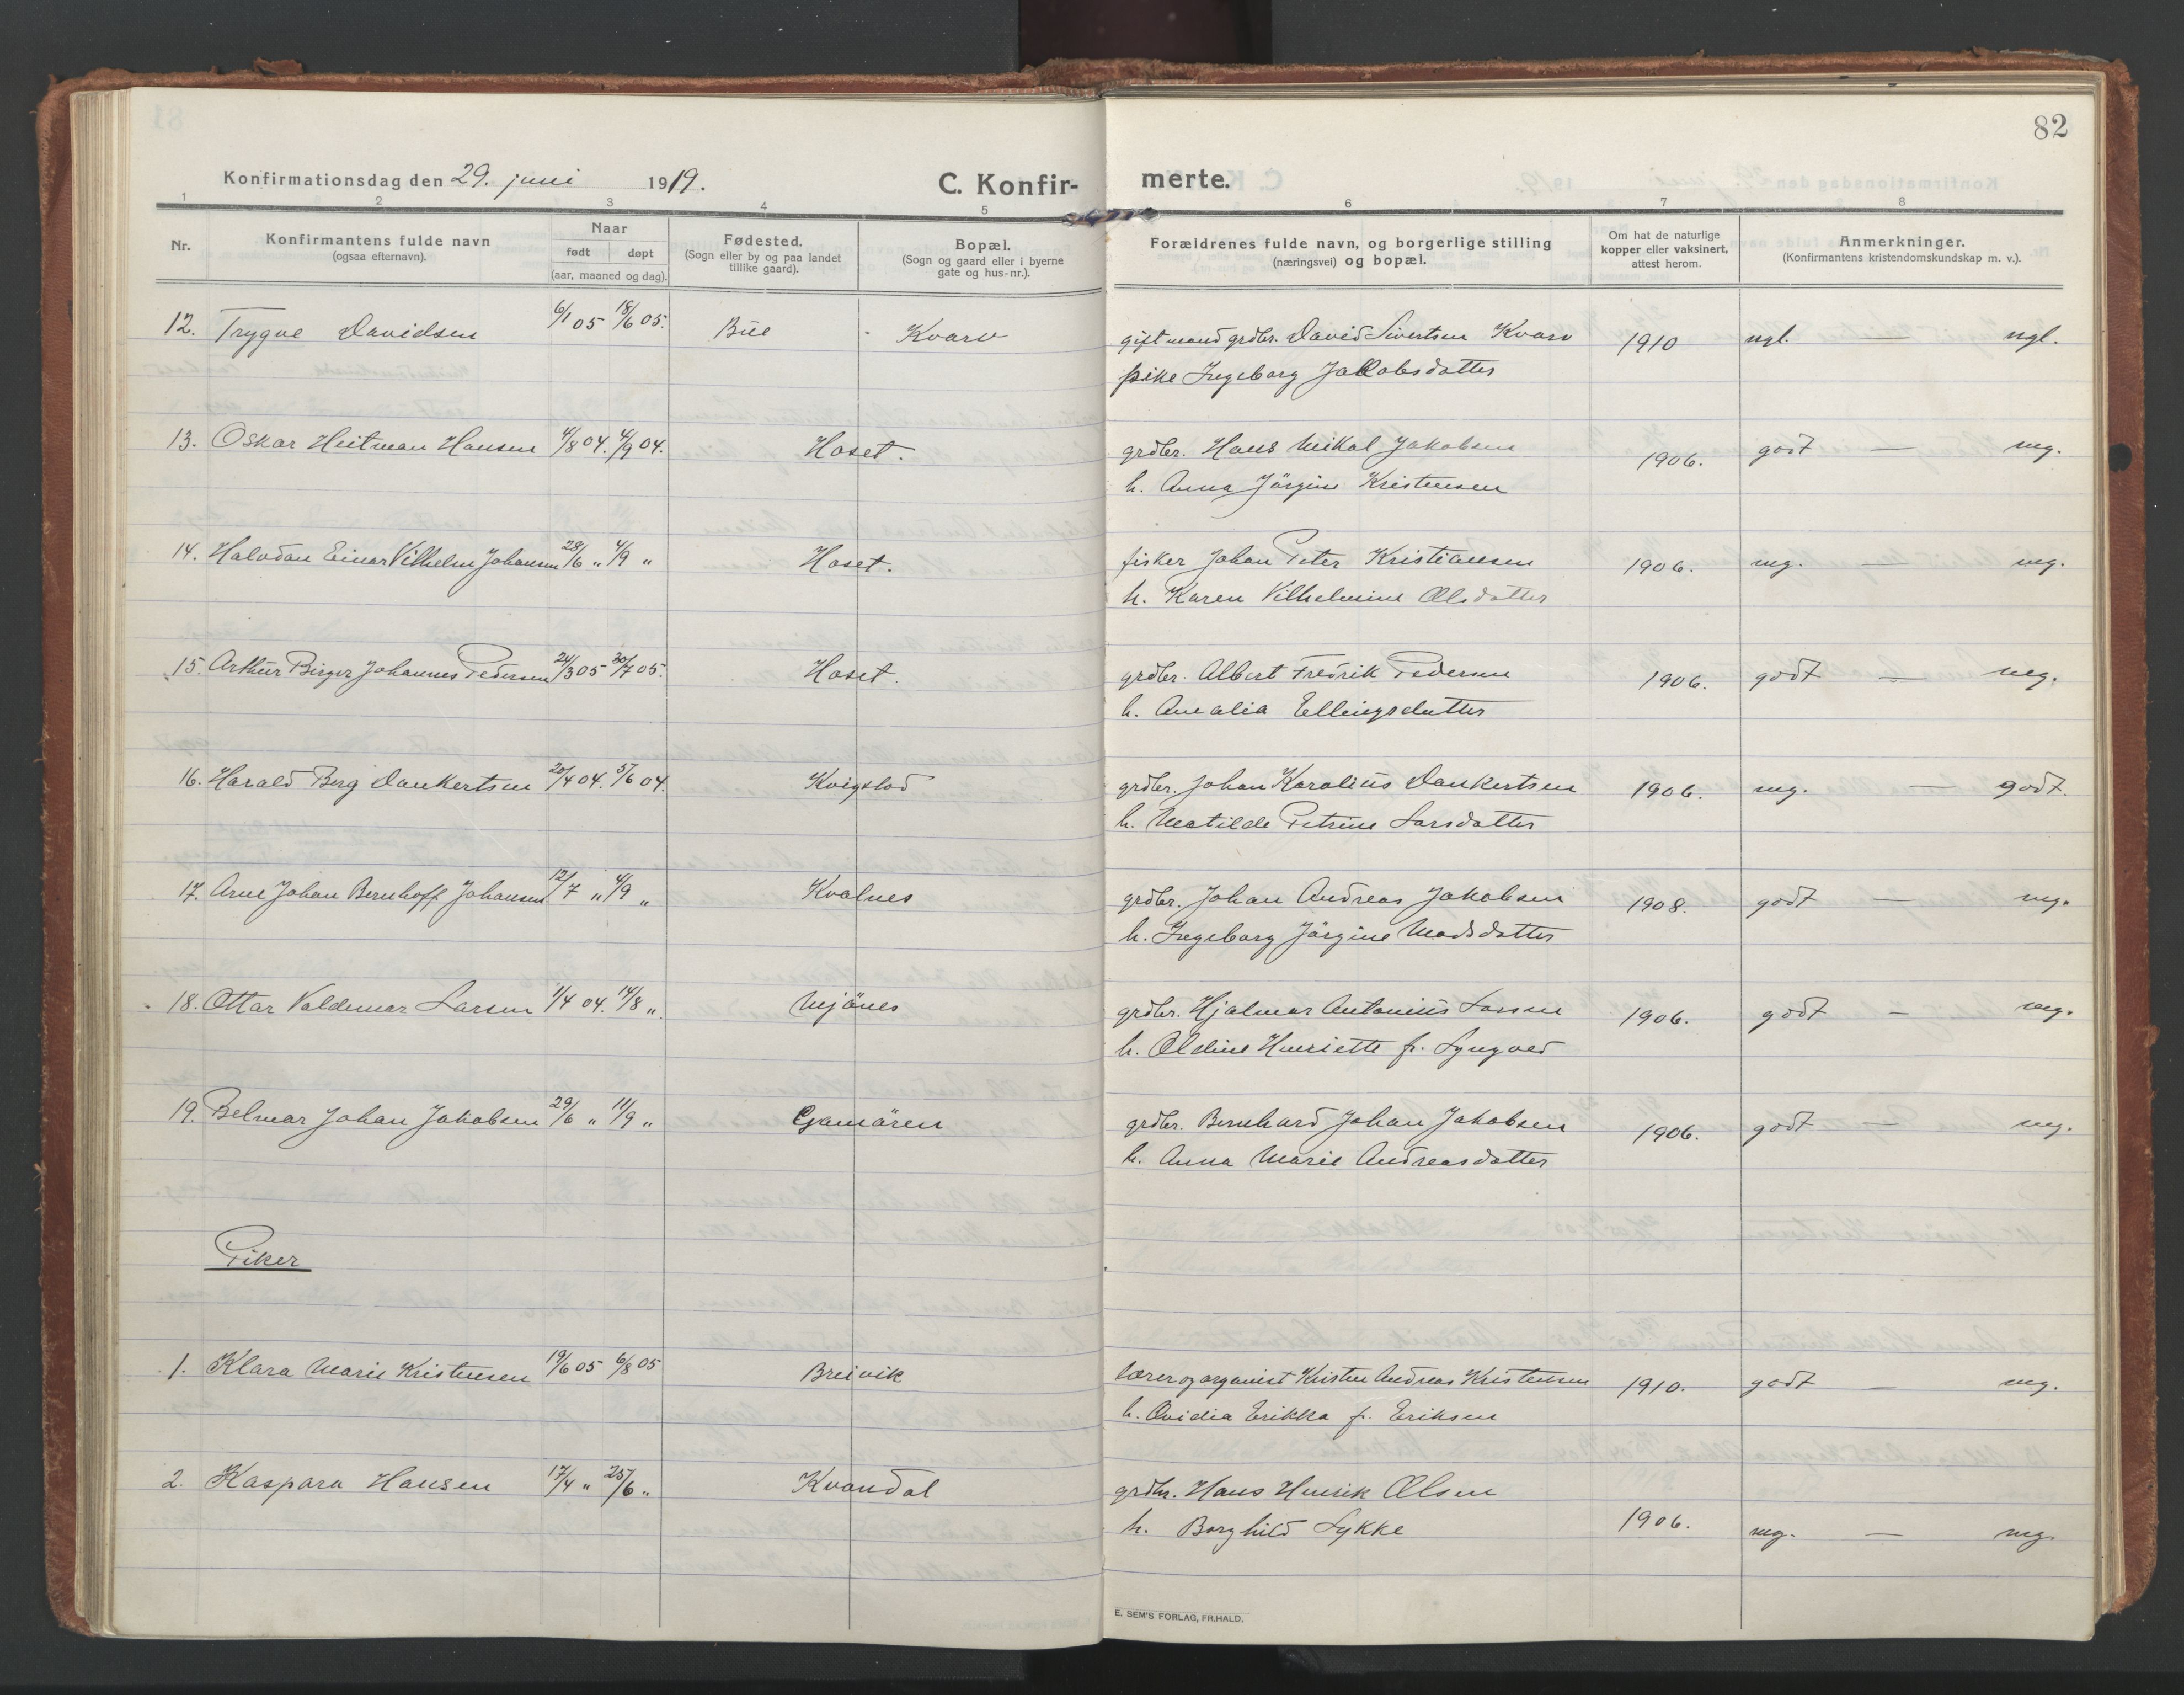 82
Konfirmationsdag den 29. juni 1919.
C. Konfir-
merte.
1 2 3 4 5 6 7 8
Nr.
Konfirmantens fulde navn
(ogsaa efternavn).
Naar
født døpt
(aar, maaned og dag).
Fødested.
(Sogn eller by og paa landet
tillike gaard).
Bopæl.
(Sogn og gaard eller i byerne
gate og hus-nr.).
Forældrenes fulde navn, og borgerlige stilling
(næringsvei) og bopæl.
Om hat de naturlige
kopper eller vaksinert,
attest herom.
Anmerkninger.
(Konfirmantens kristendomskundskap m. v.).
12. Trygve Davidsen 6/1 05 18/6 05. Bue - Kvarv gift mand grdbr. David Sivertsen Kvarv 1910 ngl. — ngl.
pike Ingeborg Jakobsdatter
13. Oskar Heitman Hansen 4/8 04. 4/9 04. Hoset. grdbr. Hans Mikal Jakobsen 1906. godt — mg.
h. Anna Jörgine Kristensen
14. Halvdan Einar Vilhelm Johansen 28/6 " 4/9 " Hoset. fisker Johan Peter Kristiansen 1906. mg. — mg.
h. Karen Vilhelmine Olsdatter
15. Arthur Birger Johannes Pedersen 24/3 05 30/7 05. Hoset. grdbr. Albert Fredrik Pedersen 1906. godt — mg.
h. Amalia Ellingsdatter
16. Harald Berg Dankertsen 20/4 04. 5/6 04. Kvigstad grdbr. Johan Karolius Dankertsen 1906. mg. — godt.
h. Matilde Petrine Larsdatter
17. Arne Johan Bernhoff Johansen 12/7 " 4/9 " Kvalnes grdbr. Johan Andreas Jakobsen 1908. godt — mg.
h. Ingeborg Jörgine Madsdatter
18. Ottar Valdemar Larsen 1/4 04. 14/8 ". Mjönes grdbr. Hjalmar Antonius Larsen 1906. godt — mg.
h. Oldine Henriette f. Lyngved
19. Belmar Johan Jakobsen 29/6 " 11/9 " Gamären grdbr. Bernhard Johan Jakobsen 1906. godt — mg.
h. Anna Marie Andreasdatter
Piker
1. Klara Marie Kristensen 19/6 05 6/8 05 Breivik lærer og organist Kristen Andreas Kristensen 1910. godt — mg.
h. Ovidia Erikka f. Eriksen
2. Kaspara Hansen 17/4 " 25/6 " Kvandal grdbr. Hans Henrik Olsen
h. Borghild Lykke 1906. mg. — mg.
E. SEM'S FORLAG, FR.HALD.